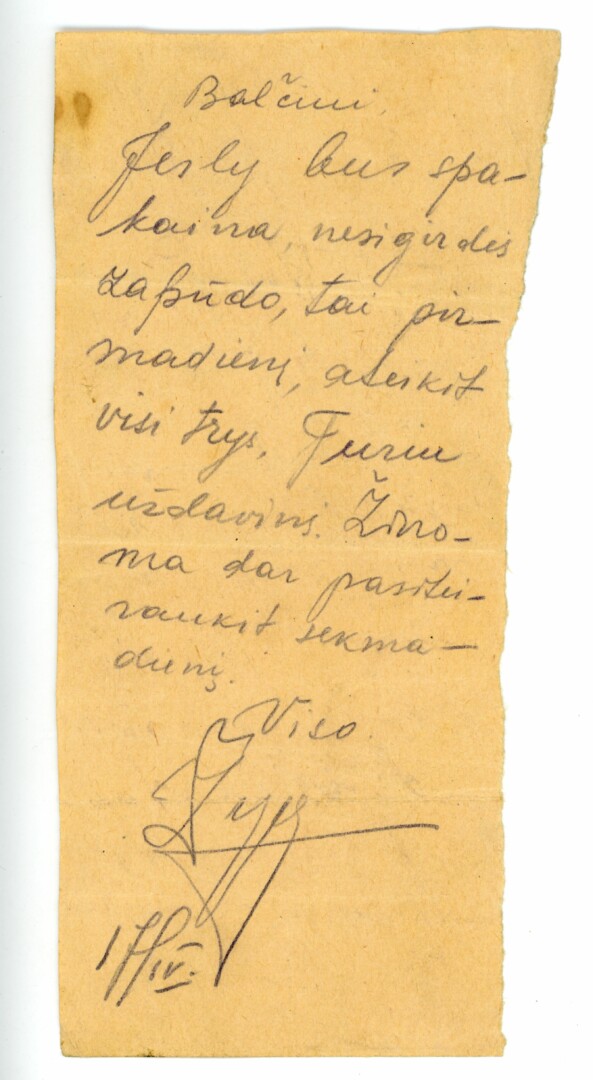 Balčiui,
Jesly bus spa-
kaina, nesigirdės
zapūdo, tai pir-
madienį, ateikit
visi trys. Turiu
uždavinį. Žino-
ma dar pasitei-
raukit sekma-
dienį.
Viso.
17/IV.